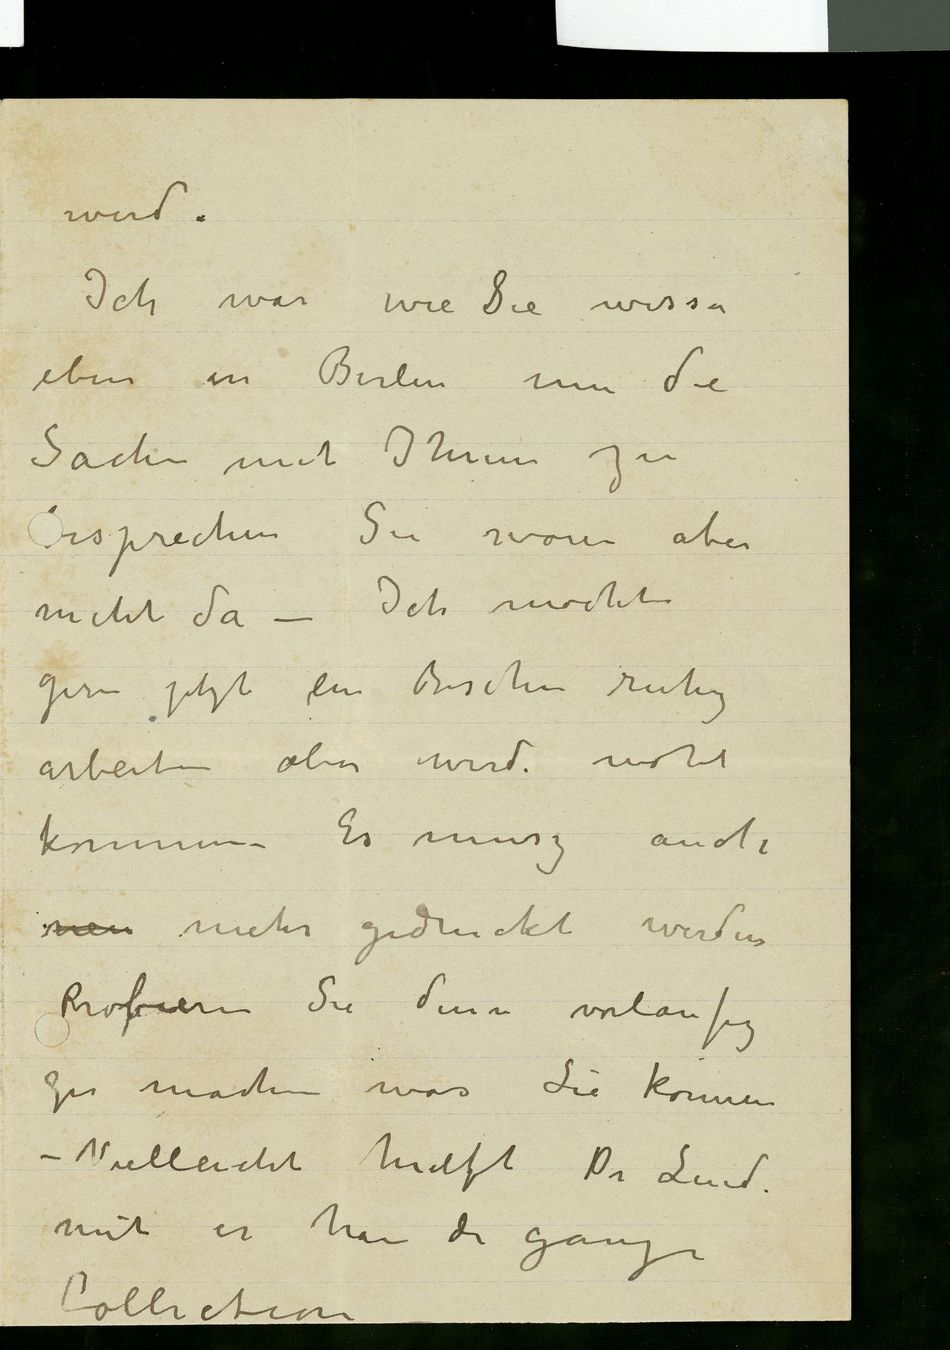 wird.
Ich war wie Sie wissen
eben in Berlin um die
Sachen mit Ihnen zu
besprechen Sie waren aber
nicht da — Ich möchte
gern jetzt ein Bischen ruhig
arbeiten aber wird nicht
kommen Es musz auch
mehr gedruckt werden
Probieren Sie denn vorläufig
zu machen was Sie können
- Vielleicht hielft Dr Lind.
mit er hat die ganze
Collection